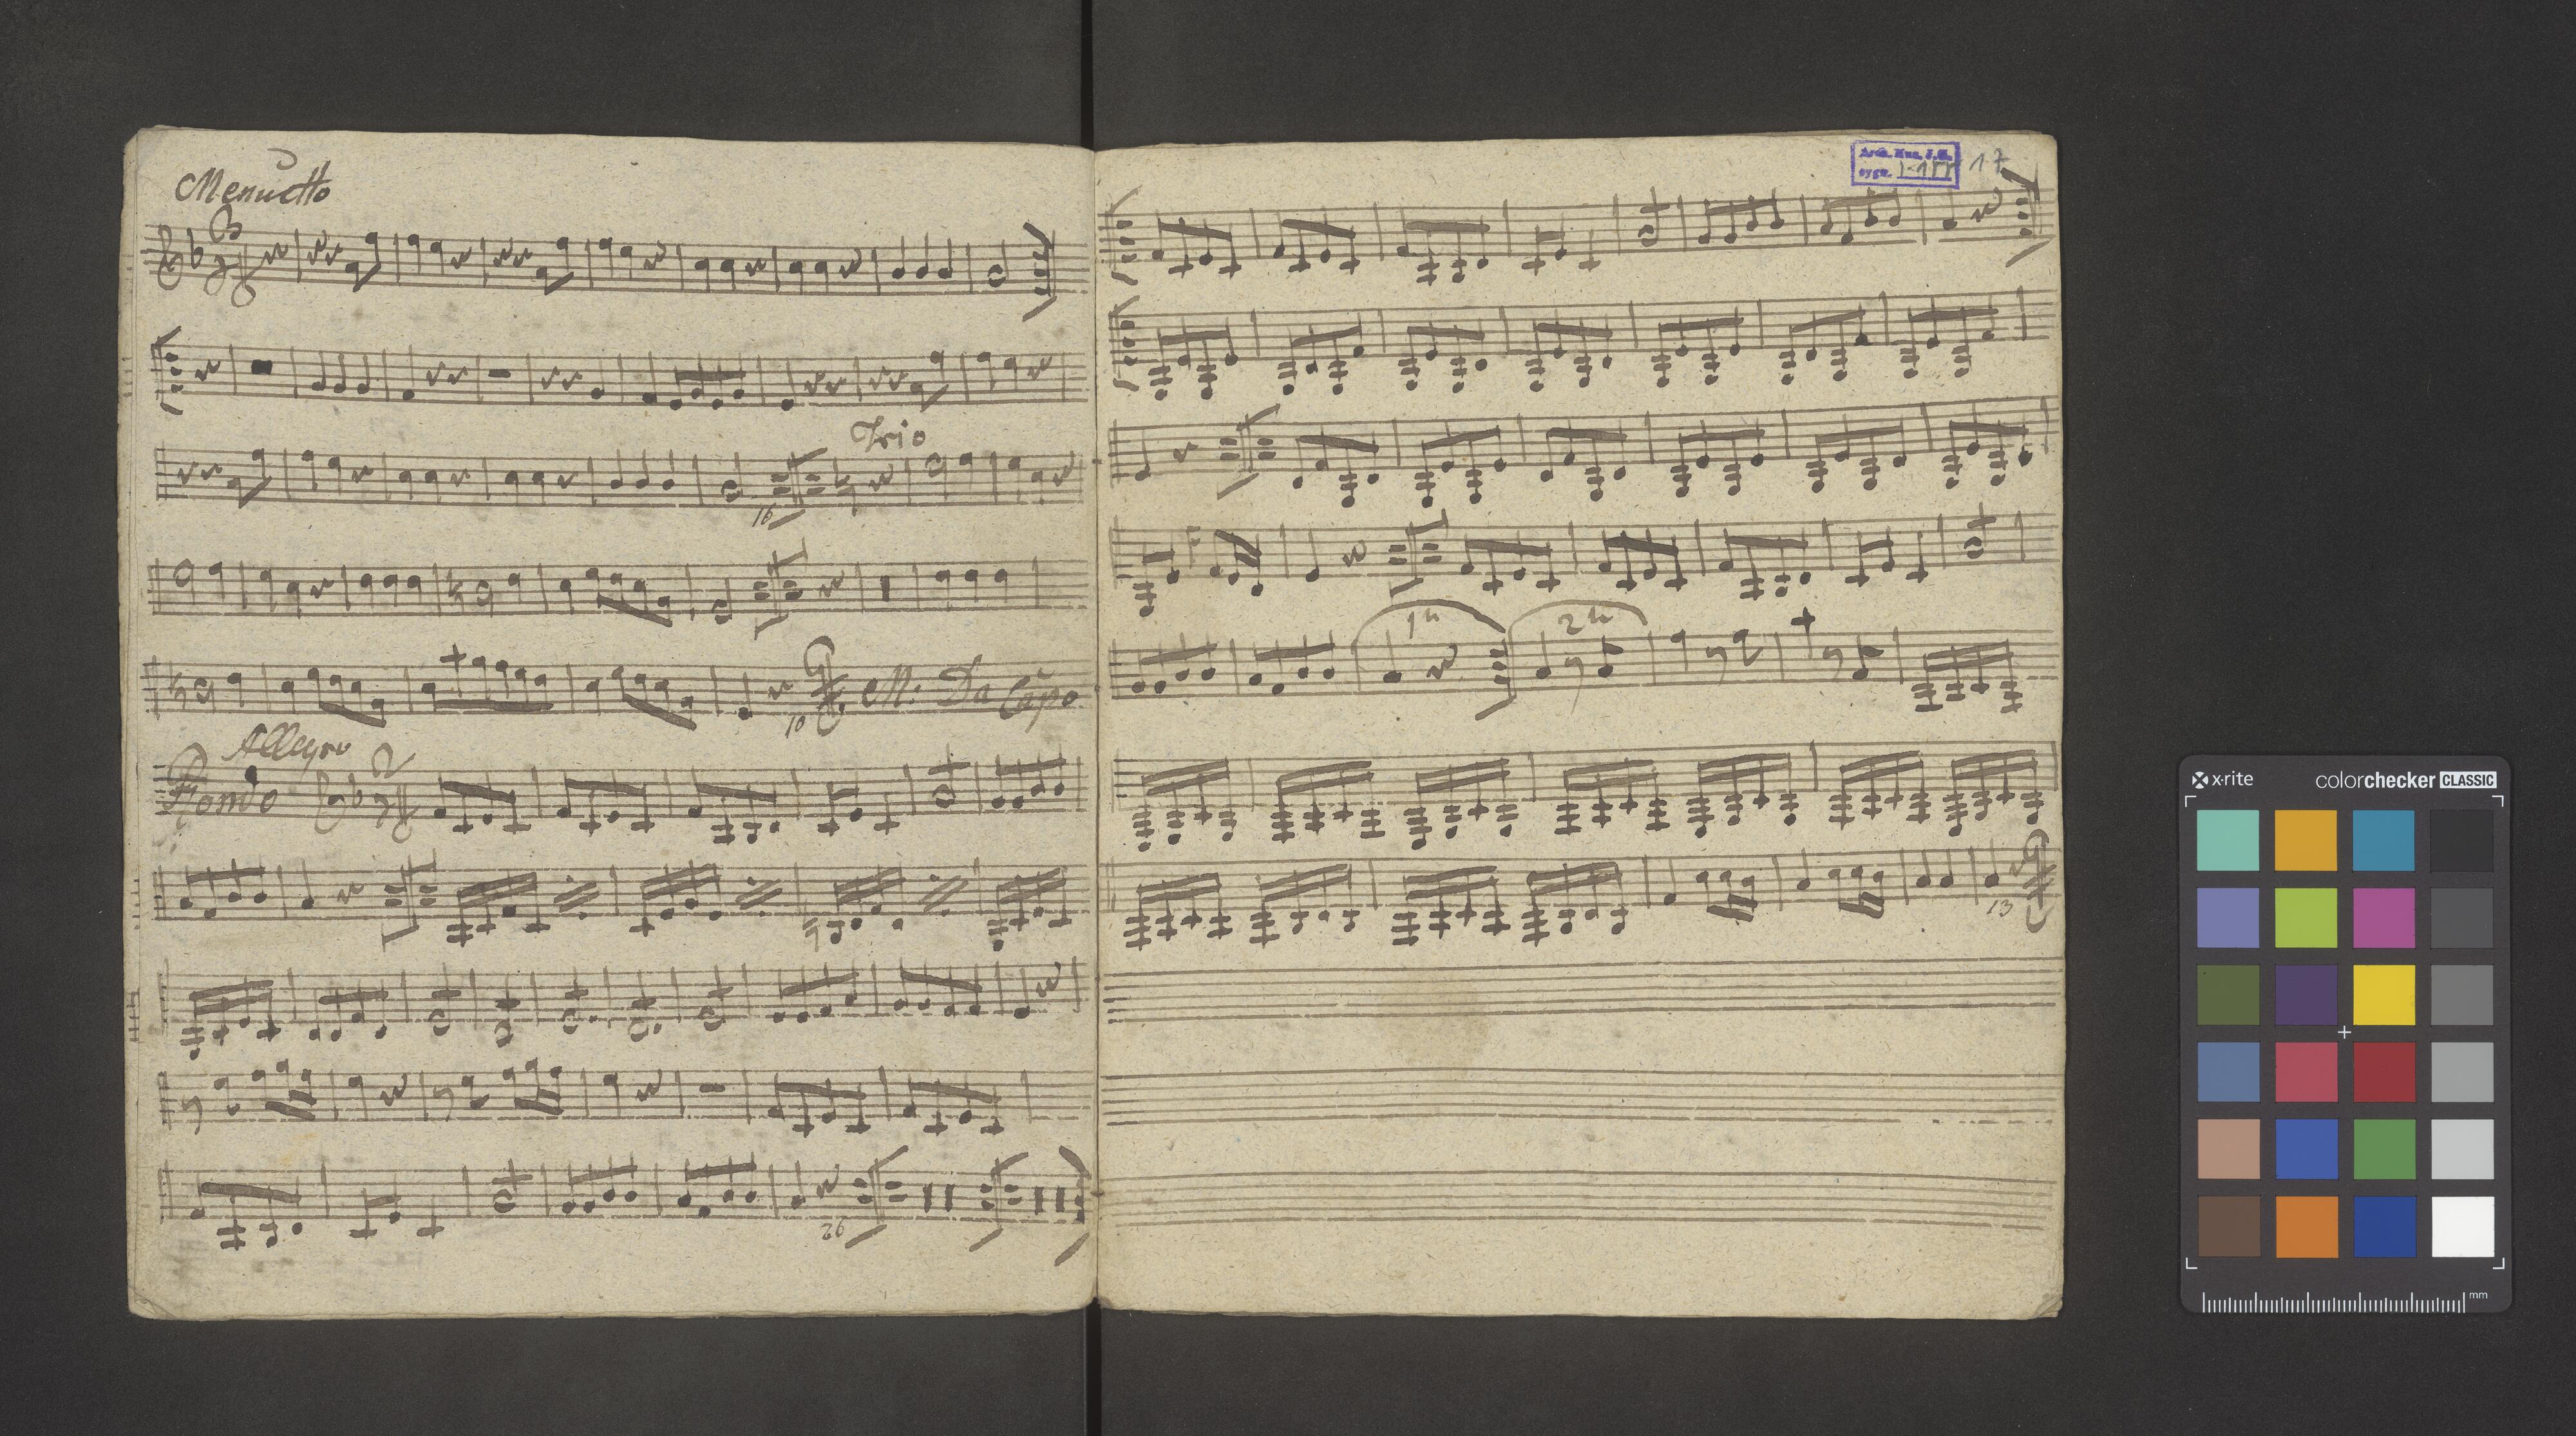 Menuetto
Trio
16
10
M: Da Capo
Allegro
Rondo
26
Arch. Mus. J.G.
sygn.
17
1
2
13
x·rite
colorchecker CLASSIC
mm